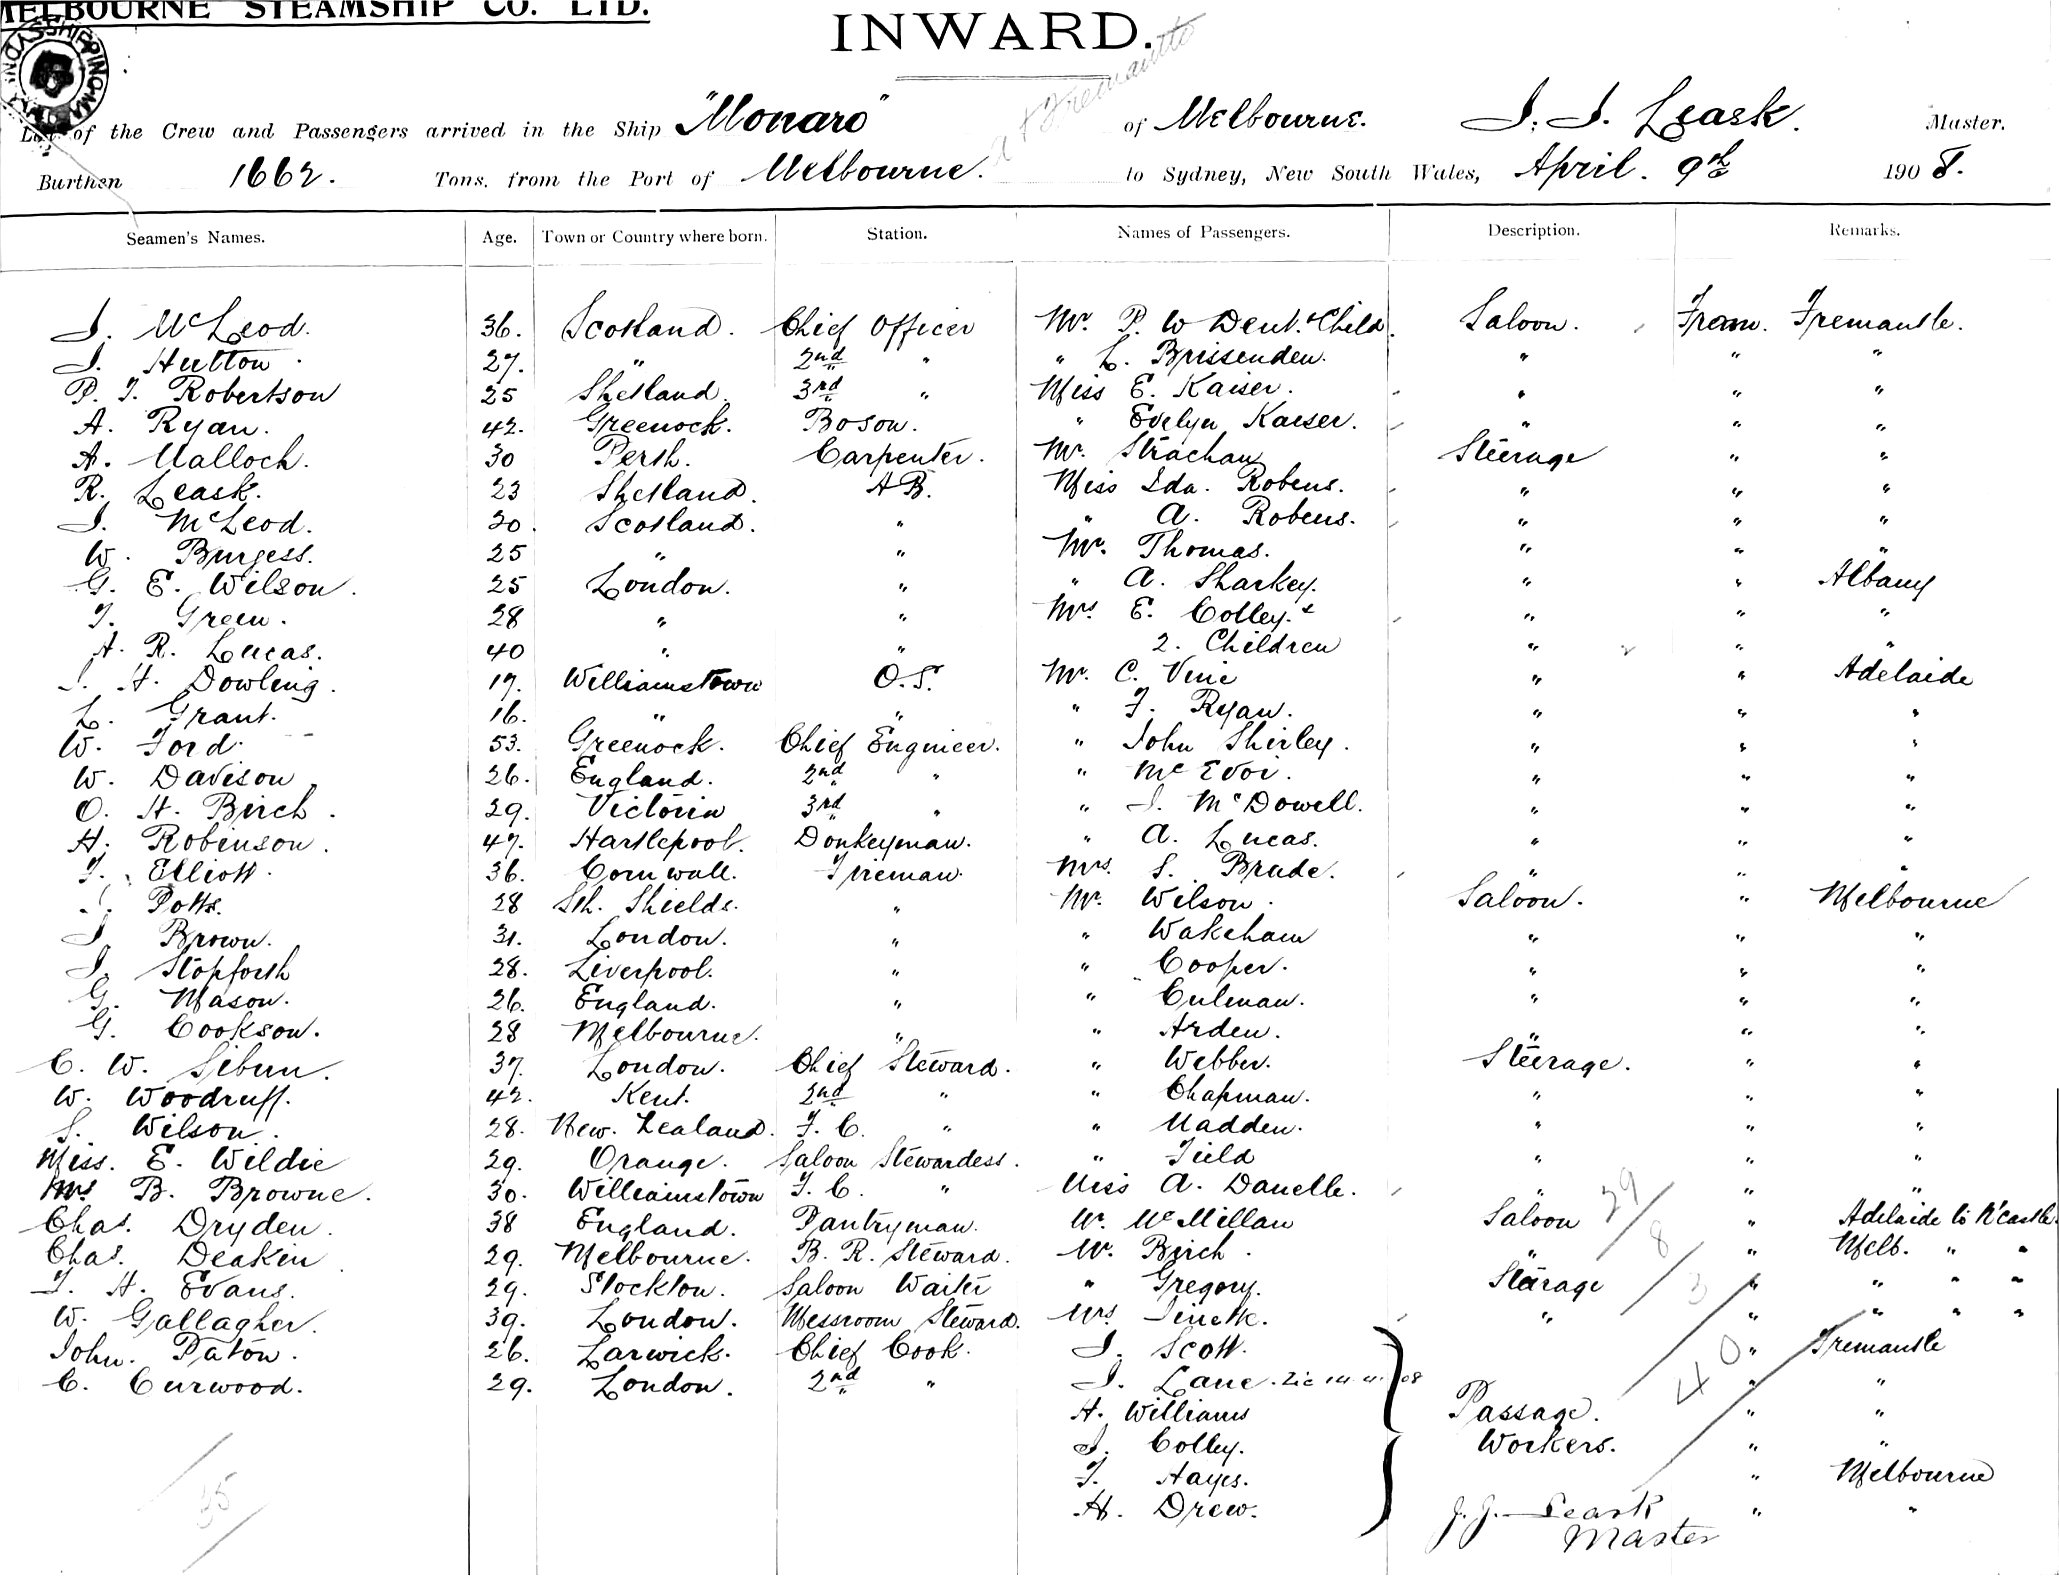 MELBOURNE STEAMSHIP CO. LTD.
INWARD.
& Fremantle
List of the Crew and Passengers arrived in the Ship "Monaro" of Melbourne. J. J. Leask. Master.
Burthen 1662. Tons, from the Port of Melbourne. to Sydney, New South Wales, April. 9th 1908.
Seamen's Names. Age. Town or Country where born. Station. Names of Passengers. Description. Remarks.
J. McLeod. 36. Scotland. Chief Officer Mr. P. W Dent. & Child. Saloon. From. Fremantle.
J. Hutton 27. " 2nd " " L. Brissenden. " " "
P. J. Robertson 25 Shetland. 3rd " Miss E. Kaiser. " " "
A. Ryan. 42. Greenock. Boson. " Evelyn Kaiser. " " "
A. Malloch. 30 Perth. Carpenter. Mr. Strachan Steerage " "
R. Leask. 23 Shetland. AB. Miss Ida. Robens. " " "
J. McLeod. 30. Scotland. " " A. Robens. " " "
W. Burgess. 25 " " Mr. Thomas. " " "
G. E. Wilson. 25 London. " " A. Sharkey. " " Albany
T. Green. 28 " " Mrs E. Colley. & " " "
A. R. Lucas. 40 " " 2. Children " " "
J. H. Dowling. 17. Williamstown O.S. Mr. C. Vine " " Adelaide
L. Grant. 16. " " " J. Ryan. " " "
W. Ford. 53. Greenock. Chief Engineer. " John Shirley. " " "
W. Davison 26. England. 2nd " " McEvoi. " " "
O. H. Birch. 29. Victoria 3rd " " J. McDowell. " " "
H. Robinson. 47. Hartlepool. Donkeyman. " A. Lucas. " " "
T. Elliott. 36. Cornwall. Fireman. Mrs. S. Brade. " " "
J. Potts. 28 Sth. Shields. " Mr. Wilson. Saloon. " Melbourne
J. Brown. 31. London. " " Wakeham " " "
J. Stopforth 28. Liverpool. " " Cooper. " " "
G. Mason. 26. England. " " Culman. " " "
G. Cookson. 28 Melbourne. " " Arden. " " "
C. W. Sibun. 37. London. Chief Steward. " Webber. Steerage. " "
W. Woodruff. 42. Kent. 2nd " " Chapman. " " "
S. Wilson. 28. New. Zealand. F. C. " " Madden. " " "
Miss. E. Wildie 29. Orange. Saloon Stewardess. " Field " " "
Mrs B. Browne. 30. Williamstown F. C. " Miss A. Danelle. " " "
Chas. Dryden. 38 England. Pantryman. Mr. McMillan Saloon " Adelaide to N'castle.
Chas. Deakin 29. Melbourne. B. R. Steward. Mr. Birch. " " Melb. " "
J. H. Evans. 29. Stockton. Saloon Waiter " Gregory. Steerage " " " "
W. Gallagher. 39. London. Messroom Steward. Mrs " " " "
John. Paton. 26. Larwick. Chief Cook. J. Scott. " Fremantle
C. Curwood. 29. London. 2nd " J. Lane. " "
H. Williams Passage. " "
J. Colley. Workers. " "
T. Hayes. " Melbourne
H. Drew. " "
29/8
/3
40
35
J. J. Leask
Master